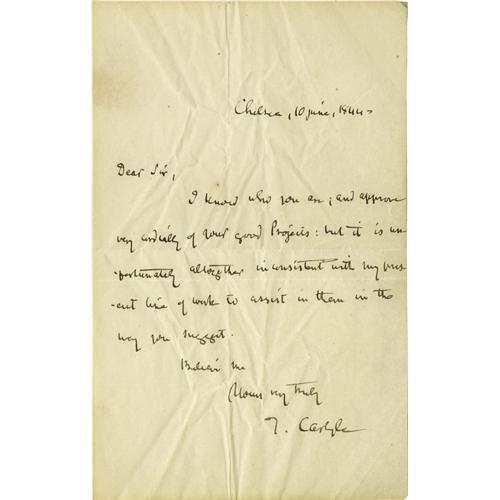 Chelsea, 10 june, 1844 -
Dear Sir,
I know who you are; and approve
very cordially of your good Projects: but it is un-
-fortunately altogether inconsistent with my pres-
-ent line of work to assist in them in the
way you suggest.
Believe me
Yours very truly
T. Carlyle